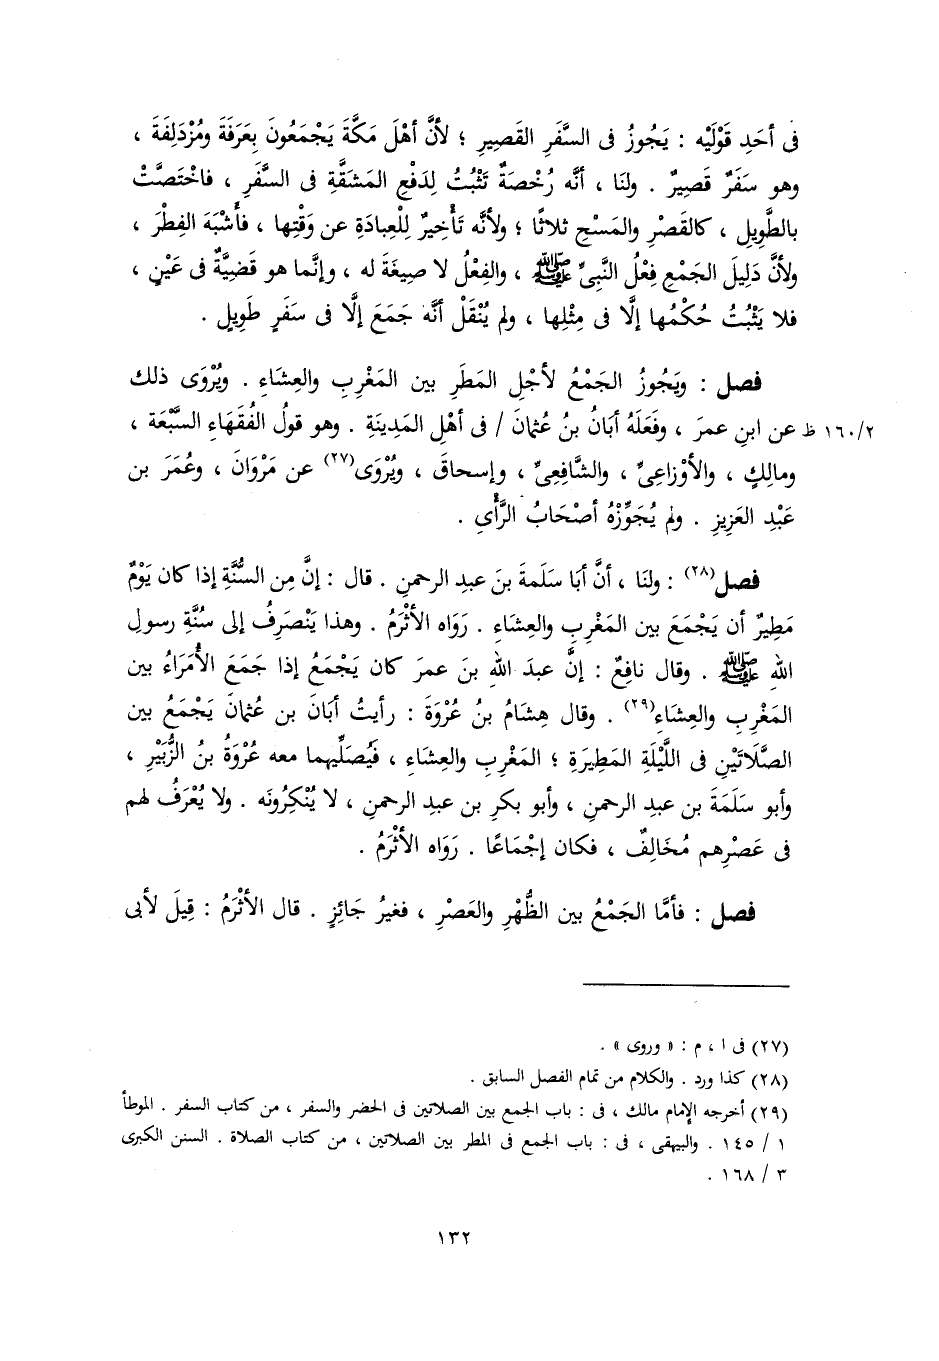 فى أحَدِ قَوْلَيْه : يَجُوزُ فى السَّفَرِ القَصِيرِ ؛ لأنَّ أهْلَ مَكَّةَ يَجْمَعُونَ بِعَرَفَةَ ومُزْدَلِفَةَ ،
وهو سَفَرٌ قَصِيرٌ . ولنَا ، أنَّه رُخْصَةٌ تَثْبُتُ لِدَفْعِ المَشَقَّةِ فى السَّفَرِ ، فاخْتَصَّتْ
بالطَّوِيلِ ، كالقَصْرِ والمَسْحِ ثلاثًا ؛ ولأنَّه تَأْخِيرٌ لِلْعِبادَةِ عن وَقْتِها ، فأَشْبَهَ الفِطْرَ ،
ولأنَّ دَلِيلَ الجَمْعِ فِعْلُ النَّبِىِّ ﷺ ، والفِعْلُ لا صِيغَةَ له ، وإنَّما هو قَضِيَّةٌ فى عَيْنٍ ،
فلا يَثْبُتُ حُكْمُها إلَّا فى مِثْلِها ، ولم يُنْقَلْ أنَّه جَمَعَ إلَّا فى سَفَرٍ طَوِيلٍ .
فصل : ويَجُوزُ الجَمْعُ لأجْلِ المَطَرِ بين المَغْرِبِ والعِشَاءِ . ويُرْوَى ذلك
١٦٠/٢ ظ عن ابنِ عمرَ ، وفَعَلَهُ أبَانُ بنُ عُثمانَ / فى أهْلِ المَدِينَةِ . وهو قولُ الفُقَهَاءِ السَّبْعَة ،
ومالِكٍ ، والأوْزاعِىِّ ، والشَّافِعِىِّ ، وإسحاقَ ، ويُرْوَى(٢٧) عن مَرْوَانَ ، وعُمَرَ بن
عَبْدِ العَزِيزِ . ولم يُجَوِّزْهُ أصْحَابُ الرَّأْىِ .
فصل(٢٨) : ولنَا ، أنَّ أبَا سَلَمةَ بنَ عبدِ الرحمنِ . قال : إنَّ مِن السُّنَّةِ إذا كان يَوْمٌ
مَطِيرٌ أن يَجْمَعَ بين المَغْرِبِ والعِشَاءِ . رَوَاه الأثْرَمُ . وهذا يَنْصَرِفُ إلى سُنَّةِ رسولِ
اللهِ ﷺ . وقال نافِعٌ : إنَّ عبدَ اللهِ بنَ عمرَ كان يَجْمَعُ إذا جَمَعَ الأُمَرَاءُ بين
المَغْرِبِ والعِشَاءِ(٢٩) . وقال هِشَامُ بنُ عُرْوَةَ : رأيتُ أبَانَ بن عُثمانَ يَجْمَعُ بين
الصَّلَاتَيْنِ فى اللَّيْلَةِ المَطِيرَةِ ؛ المَغْرِبِ والعِشَاءِ ، فيُصَلِّيهما معه عُرْوَةُ بنُ الزُّبَيْرِ ،
وأبو سَلَمَةَ بن عبدِ الرحمنِ ، وأبو بكرِ بن عبدِ الرحمنِ ، لا يُنْكِرُونَه . ولا يُعْرَفُ لهم
فى عَصْرِهم مُخَالِفٌ ، فكان إجْمَاعًا . رَوَاه الأثْرَمُ .
فصل : فأمَّا الجَمْعُ بين الظُّهْرِ والعَصْرِ ، فغيرُ جَائِزٍ . قال الأثْرَمُ : قِيلَ لأبى
(٢٧) فى ا ، م : « وروى » .
(٢٨) كذا ورد . والكلام من تمام الفصل السابق .
(٢٩) أخرجه الإمام مالك ، فى : باب الجمع بين الصلاتين فى الحضر والسفر ، من كتاب السفر . الموطأ
١ / ١٤٥ . والبيهقى ، فى : باب الجمع فى المطر بين الصلاتين ، من كتاب الصلاة . السنن الكبرى
٣ / ١٦٨ .
١٣٢